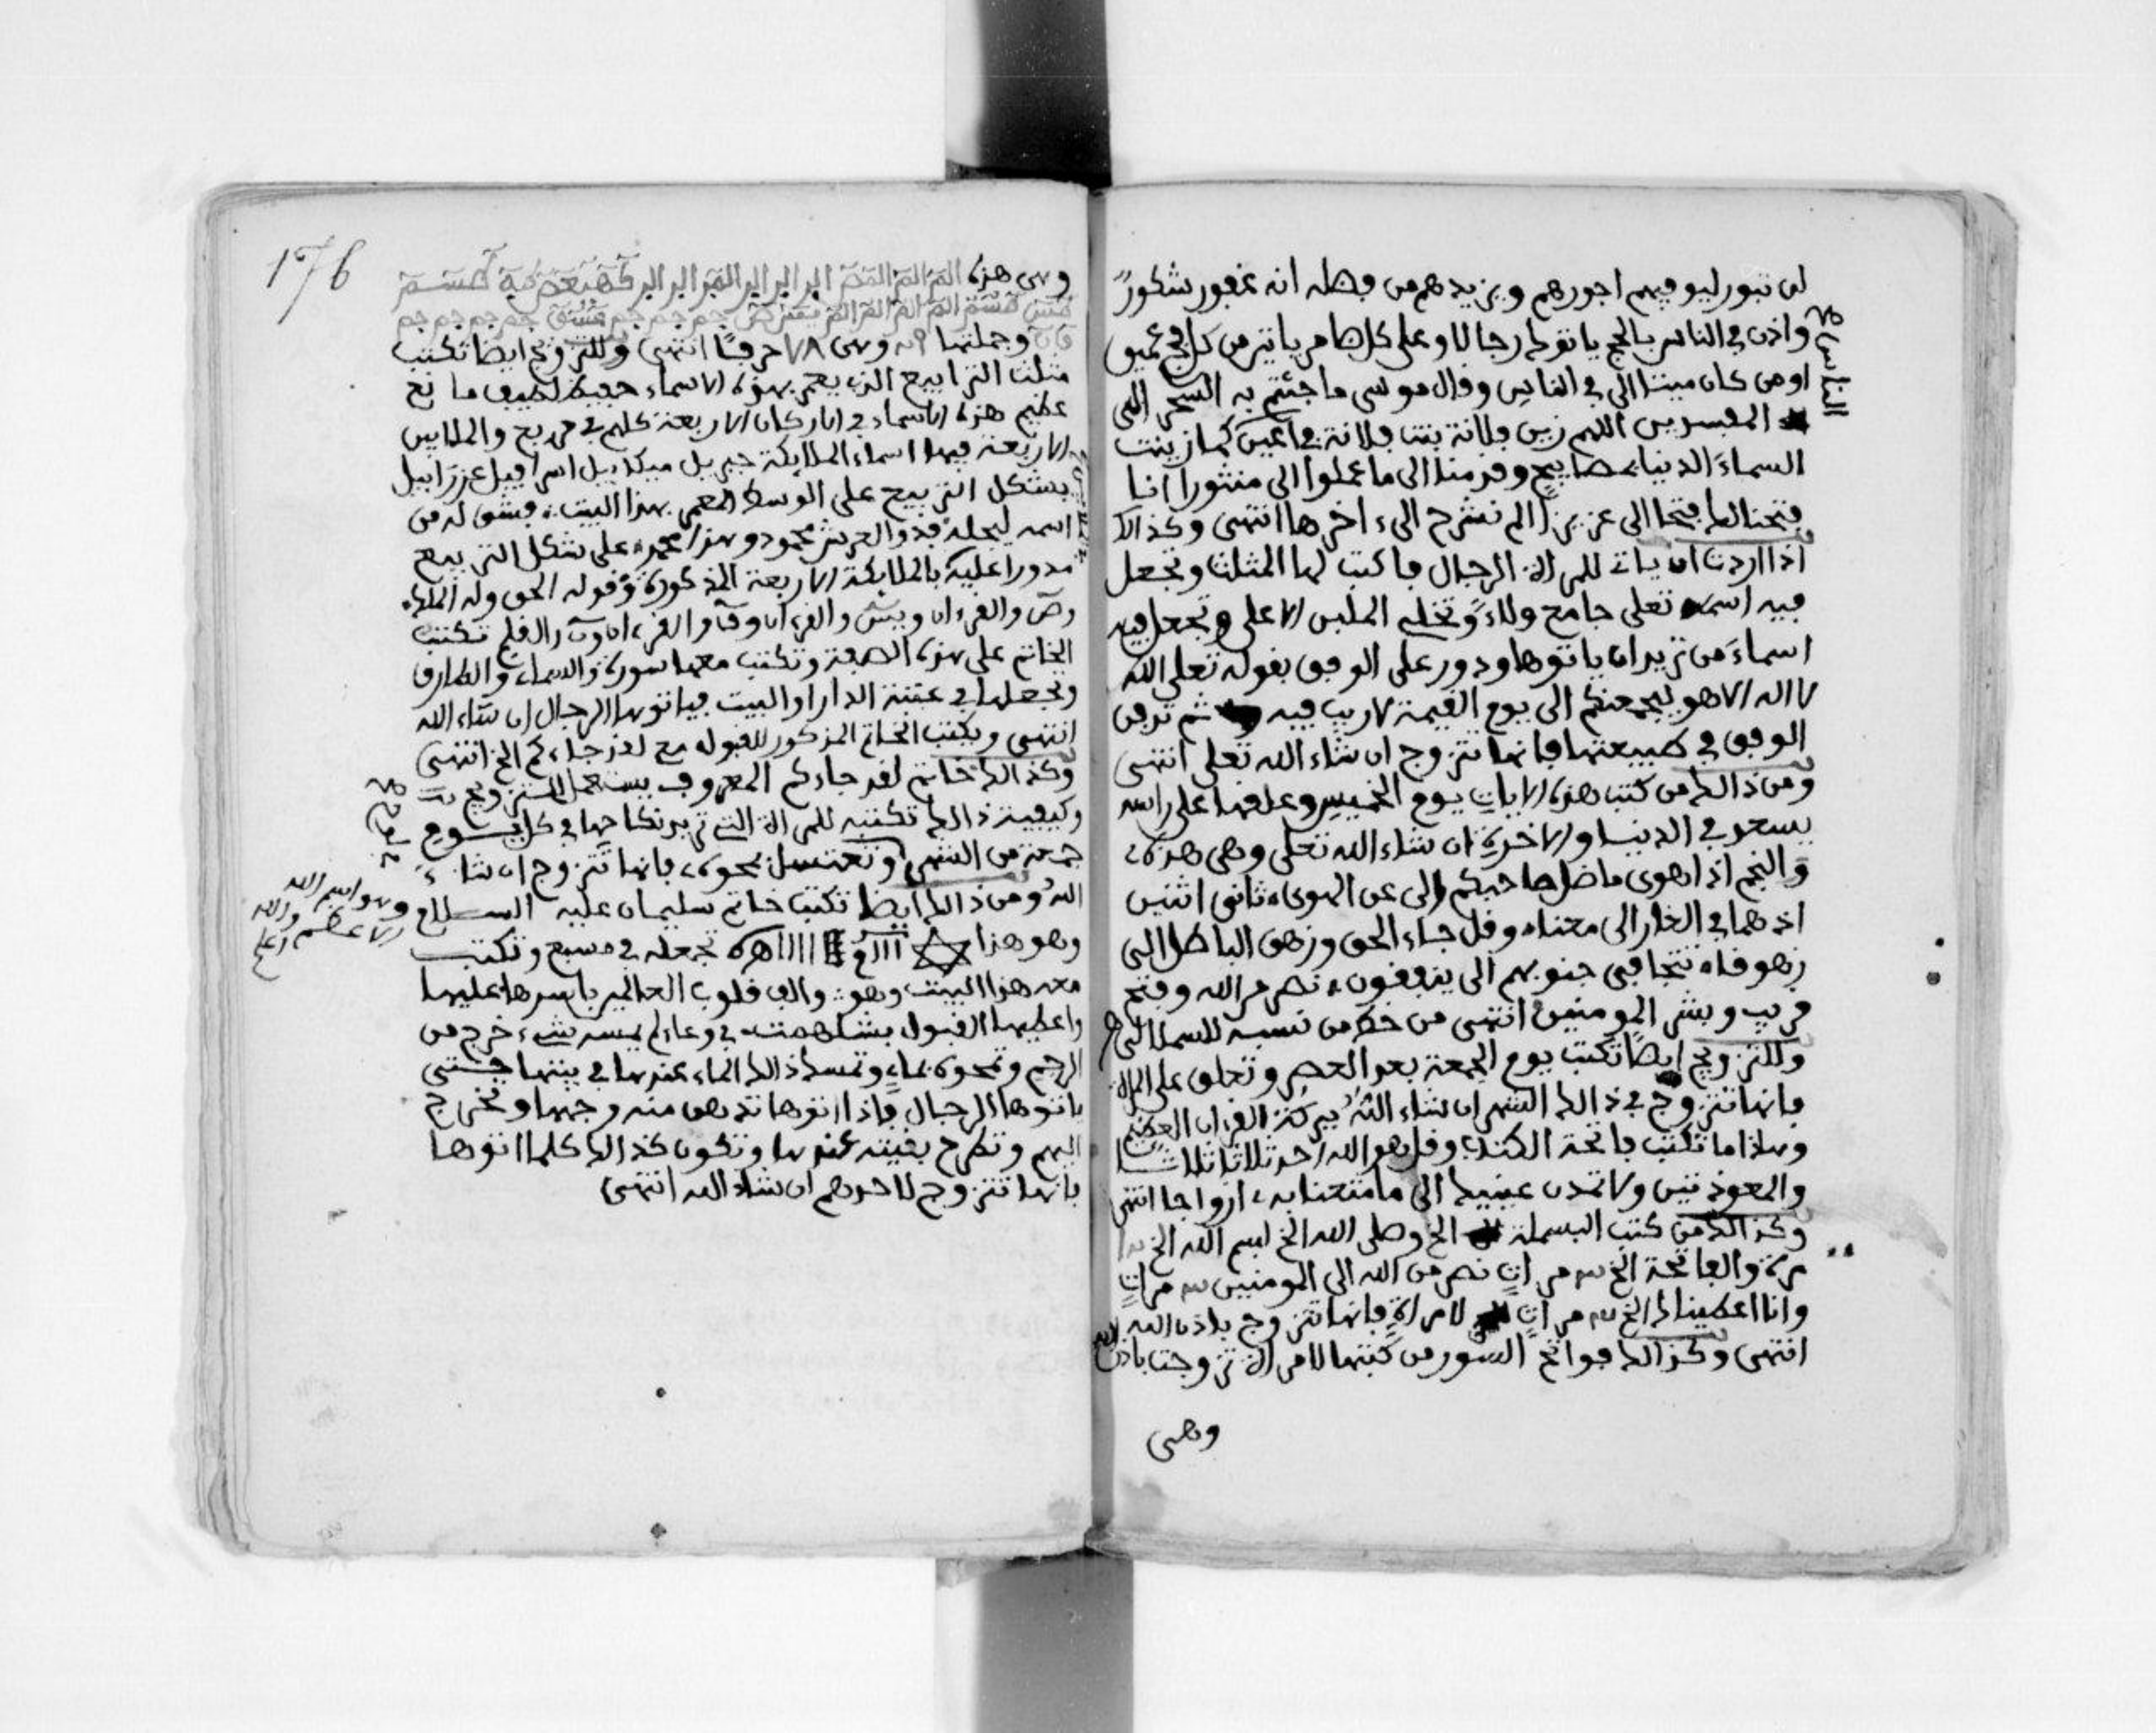 لن تبور ليوفيهم اجورهم ويزيدهم من فضله انه غفور شكور
واذن في الناس بالحج ياتوك رجالا وعلى كل ضامر ياتين من كل فج عميق
او من كان ميتا الى في الناس وقال موسى ما جئتم به السحر الى
المفسدين اللهم زين فلانة بنت فلانة في اعين كما زينت
السماء الدنيا بمصابيح وقدمنا الى ما عملوا الى منثورا انا
فتحنا لك فتحا الى عزيزا الم نشرح الى اخرها انتهى وكذالك
اذا اردت ان يات للمراة الرجال فاكتب لها المثلث وتجعل
فيه اسمه تعلى جامع ولاء وتخليه الملبس الاعلى وتجعل فيه
اسماء من تريد ان ياتوها ودور على الوفق بقوله تعلى الله
لا اله الا هو ليجمعنكم الى يوم القيمة لا ريب فيه ثم تدفن
الوفق في طبيعتها فانها تتزوج ان شاء الله تعلى انتهى
ومن ذالك من كتب هذه الايات يوم الخميس وعلقها على راسه
يسعد في الدنيا والاخرة ان شاء الله تعلى وهى هذه
والنجم اذا هوى ما ضل صاحبكم الى عن الهوى ثاني اثنين
اذ هما في الغار الى معنا وقل جاء الحق وزهق الباطل الى
زهوقا تتجافى جنوبهم الى ينفقون نصر من الله وفتح
قريب وبشر المومنين انتهى من خط من نسبه
وللتزويج ايضا تكتب يوم الجمعة بعد العصر وتعلق على المراة
فانها تتزوج في ذالك الشهر ان شاء الله ببركة القران العظيم
وهذا ما تكتب فاتحة الكتاب وقل هو الله احد ثلاثا ثلاثا
والمعوذتين ولا تمدن عينيك الى ما متعنا به ازواجا انتهى
وكذالك من كتب البسملة الخ وصلى الله الخ بسم الله الخ
مرة والفاتحة الخ مرات نصر من الله الى المومنين مرات
وانا اعطيناك الخ مرات لامراة فانها تتزوج باذن الله
انتهى وكذالك فواتح السور من كتبها لامراة تزوجت باذن الله
وهى
176
وهى هذه الم الم المص الر الر الر المر الر الر كهيعص طه طسم
طس طسم الم الم الم الم يس ص حم حم حم عسق حم حم حم حم
ق ن وجملتها وهى ٧٨ حرفا انتهى وللتزويج ايضا تكتب
مثلث الترابيع الذي يعمر بهذه الاسماء حفيظ لطيف مانع
عظيم هذه الاسماء في الاركان الاربعة كلهم في مربع والملابس
الاربعة فيها اسماء الملايكة جبريل ميكاييل اسرافيل عزراييل
بشكل التربيع على الوسط المعمر بهذا البيت وشق له من
اسمه ليجله فذو العرش محمود وهذا محمد على شكل التربيع
مدورا عليه بالملايكة الاربعة المذكورة وقوله الحق وله الملك
وص والقرءان ويس والقرءان وق والقرءان ون والقلم تكتب
الخاتم على هذه الصفة وتكتب معها سورة والسماء والطارق
وتجعلها في عتبة الدار او البيت فياتوها الرجال ان شاء الله
انتهى ويكتب الخاتم المذكور للقبول مع لقد جاءكم الخ انتهى
وكذالك خاتم لقد جاءكم المعروف يستعمل للتزويج
وكيفية ذالك تكتبه للمراة التي تريد نكاحها في كل يوم
جمعة من الشهر وتغتسل بمحوه فانها تتزوج ان شاء
الله ومن ذالك ايضا تكتب خاتم سليمان عليه السلام
وهو هذا تجعله في مسبع وتكتب
معه هذا البيت وهو والف قلوب العالمين باسرها عليها
واعطيها القبول بشلهمت في وعاء لم يمسه شيء خرج من
الرحيم وتمحوه بماء وتمسك ذالك الماء عندها في بيتها حتى
ياتوها الرجال فاذا اتوها تدهن منه وجهها وتخرج
اليهم وتطرح بقيته عندها وتكون كذالك كلما اتوها
فانها تتزوج لاحدهم ان شاء الله انتهى
وهو اسم الله
الاعظم والله
اعلم